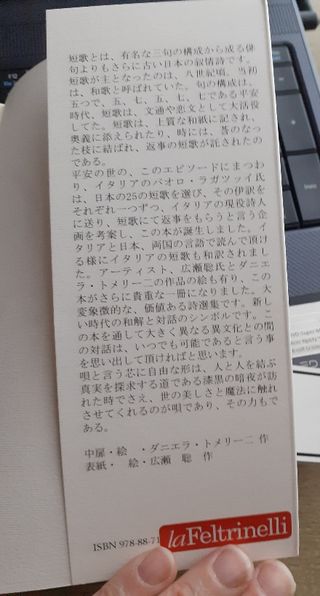 短歌とは、有名な三句の構成から成る俳
句よりもさらに古い日本の叙情詩です。
短歌が主となったのは、八世紀頃。当初
は、和歌と呼ばれていた。句の構成は、
五つで、五、七、五、七、七である平安
時代、短歌は、文通や恋文として大活役
してた。短歌は、上質な和紙に記され、
奥義に添えられたり、時には、苔のなっ
た枝に結ばれ、返事の短歌が託されたの
である。
平安の世の、このエピソードにまつわ
り、イタリアのパオロ・ラガッツィ氏
は、日本の25の短歌を選び、その伊訳を
それぞれ一つずつ、イタリアの現役詩人
に送り、短歌にて返事をもらうと言う企
画を考案し、この本が誕生しました。イ
タリアと日本、両国の言語で読んで頂け
る様にイタリアの短歌も和訳されまし
た。アーティスト、広瀬聡氏とダニエ
ラ・トメリーニの作品の絵も有り、この
本がさらに貴重な一冊になりました。大
変象徴的な、価値ある詩選集です。新し
い時代の和解と対話のシンボルです。こ
の本を通して大きく異なる異文化との間
の対話は、いつでも可能であると言う事
を思い出して頂ければと思います。
唄と言う芯に自由な形は、人と人を結ぶ
真実を探求する道である漆黒の暗夜が訪
れた時でさえ、世の美しさと魔法に触れ
させてくれるのが唄であり、その力でも
ある。
中扉・絵 ・ダニエラ・トメリーニ 作
表紙・ 絵・広瀬 聡 作
ISBN 978-88-71
laFeltrinelli